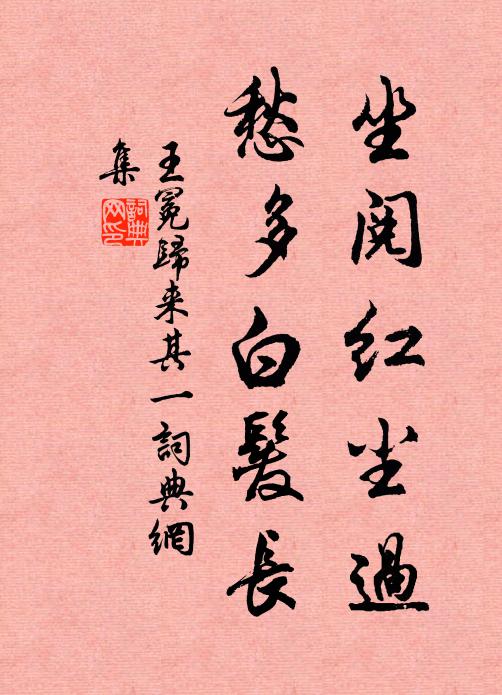 坐閱紅尘過
愁多白髮長
王冕歸来其一詞典網
集
詞典网印